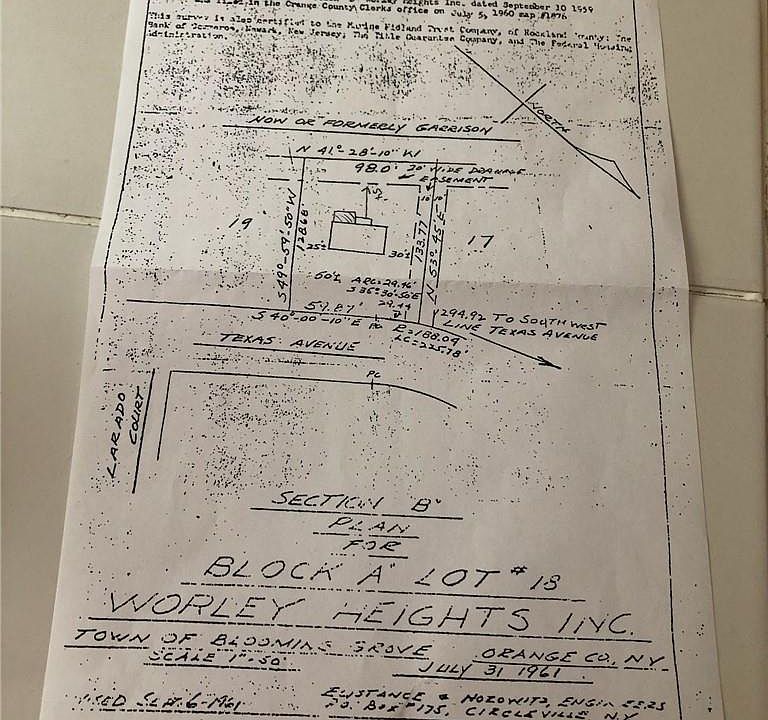 Heights Inc. dated September 10 1959
in the Orange County Clerks office on July 5, 1960 map #1876
This survey is also certified to the Marine Midland Trust Company, of Rockland County: The
Bank of Commerce, Newark, New Jersey; The Title Guarantee Company, and The Federal Housing
Administration.
NORTH
NOW OR FORMERLY GARRISON
N 41°-28'-10" W
98.0'
20' WIDE DRAINAGE
EASEMENT
10' 10'
19
S 49°-59'-50" W
128.68'
25'±
30'±
133.77'
N 53°-45' E
17
60'±
ARC=29.46'
S 36°-30'-50"E
29.44
59.87'
S 40°-00'-10" E
PC
R=188.09
LC=225.78'
294.92 TO SOUTHWEST
LINE TEXAS AVENUE
TEXAS AVENUE
PC
LARADO
COURT
SECTION B"
PLAN
FOR
BLOCK A" LOT #18
WORLEY HEIGHTS INC.
TOWN OF BLOOMING GROVE ORANGE CO., N.Y.
SCALE 1"-50' JULY 31 1961
6-1961
EUSTANCE & HOROWITZ, ENGINEERS
P.O. BOX #175, CIRCLEVILLE, N.Y.